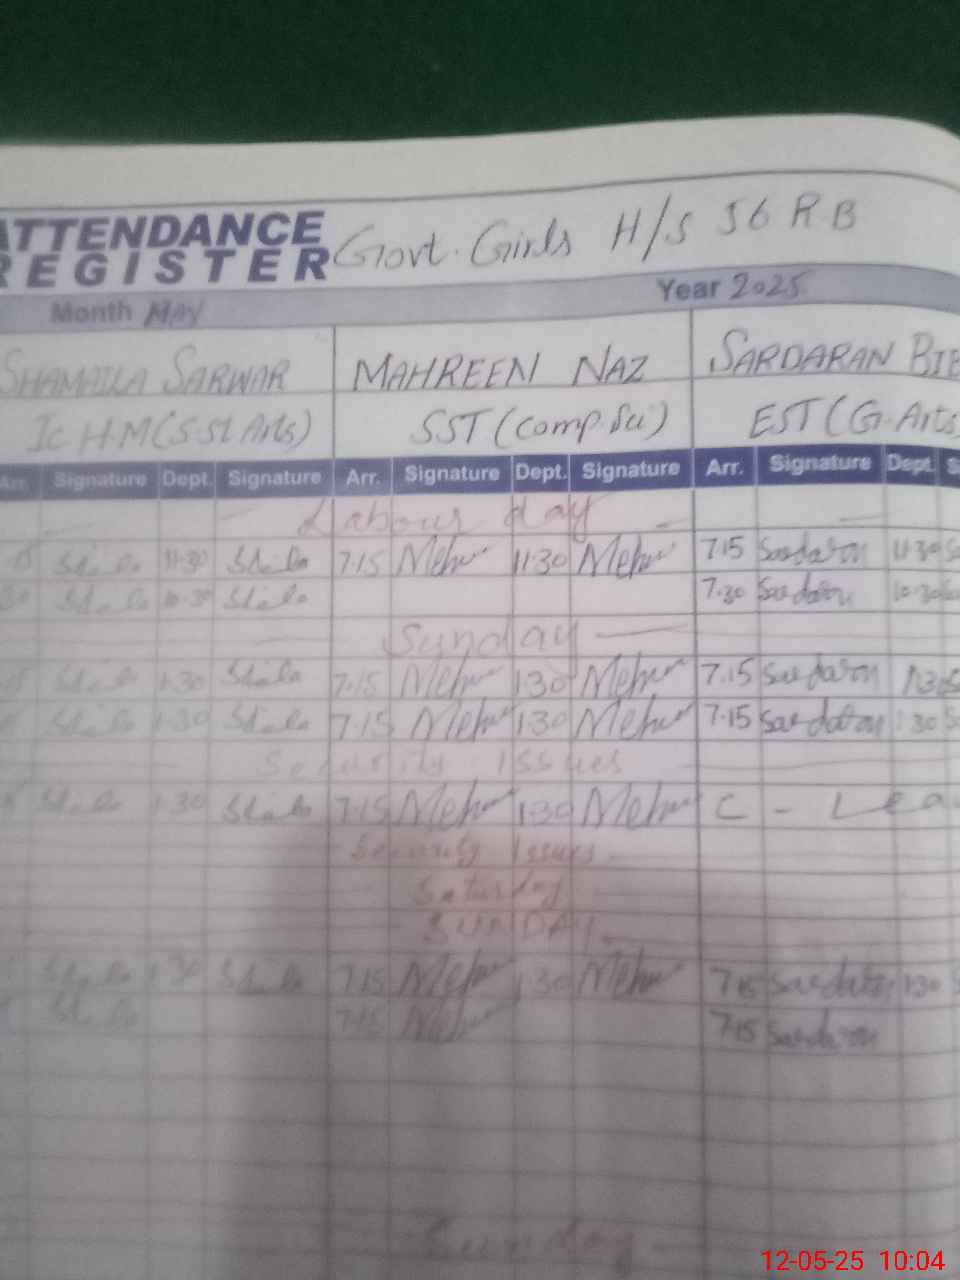 ATTENDANCE REGISTER Govt. Girls H/S 56 R.B
Month May Year 2025
SHAMAILA SARWAR MAHREEN NAZ SARDARAN BIB
Ic H.M (S.St Arts) SST (Comp.Sci) EST (G.Arts)
Arr. Signature Dept. Signature Arr. Signature Dept. Signature Arr. Signature Dept. S
Labour day
11-30 7.15 Mehr 11.30 Mehr 7.15 Sardaran 11.30
10.30 7.30 Sardaran 10.30
Sunday
1.30 7.15 Mehr 1.30 Mehr 7.15 Sardaran 1.30
1.30 7.15 Mehr 1.30 Mehr 7.15 Sardaran 1.30
Security Issues
1.30 7.15 Mehr 1.30 Mehr C - Lea
Security Issues
Saturday
SUNDAY
1.30 7.15 Mehr 1.30 Mehr 7.15 Sardaran 1.30
7.15 Mehr 7.15 Sardaran
Sunday
12-05-25 10:04